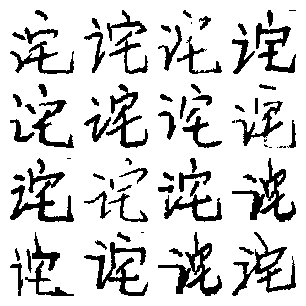 诧诧诧诧
诧诧诧诧
诧诧诧诧
诧诧诧诧